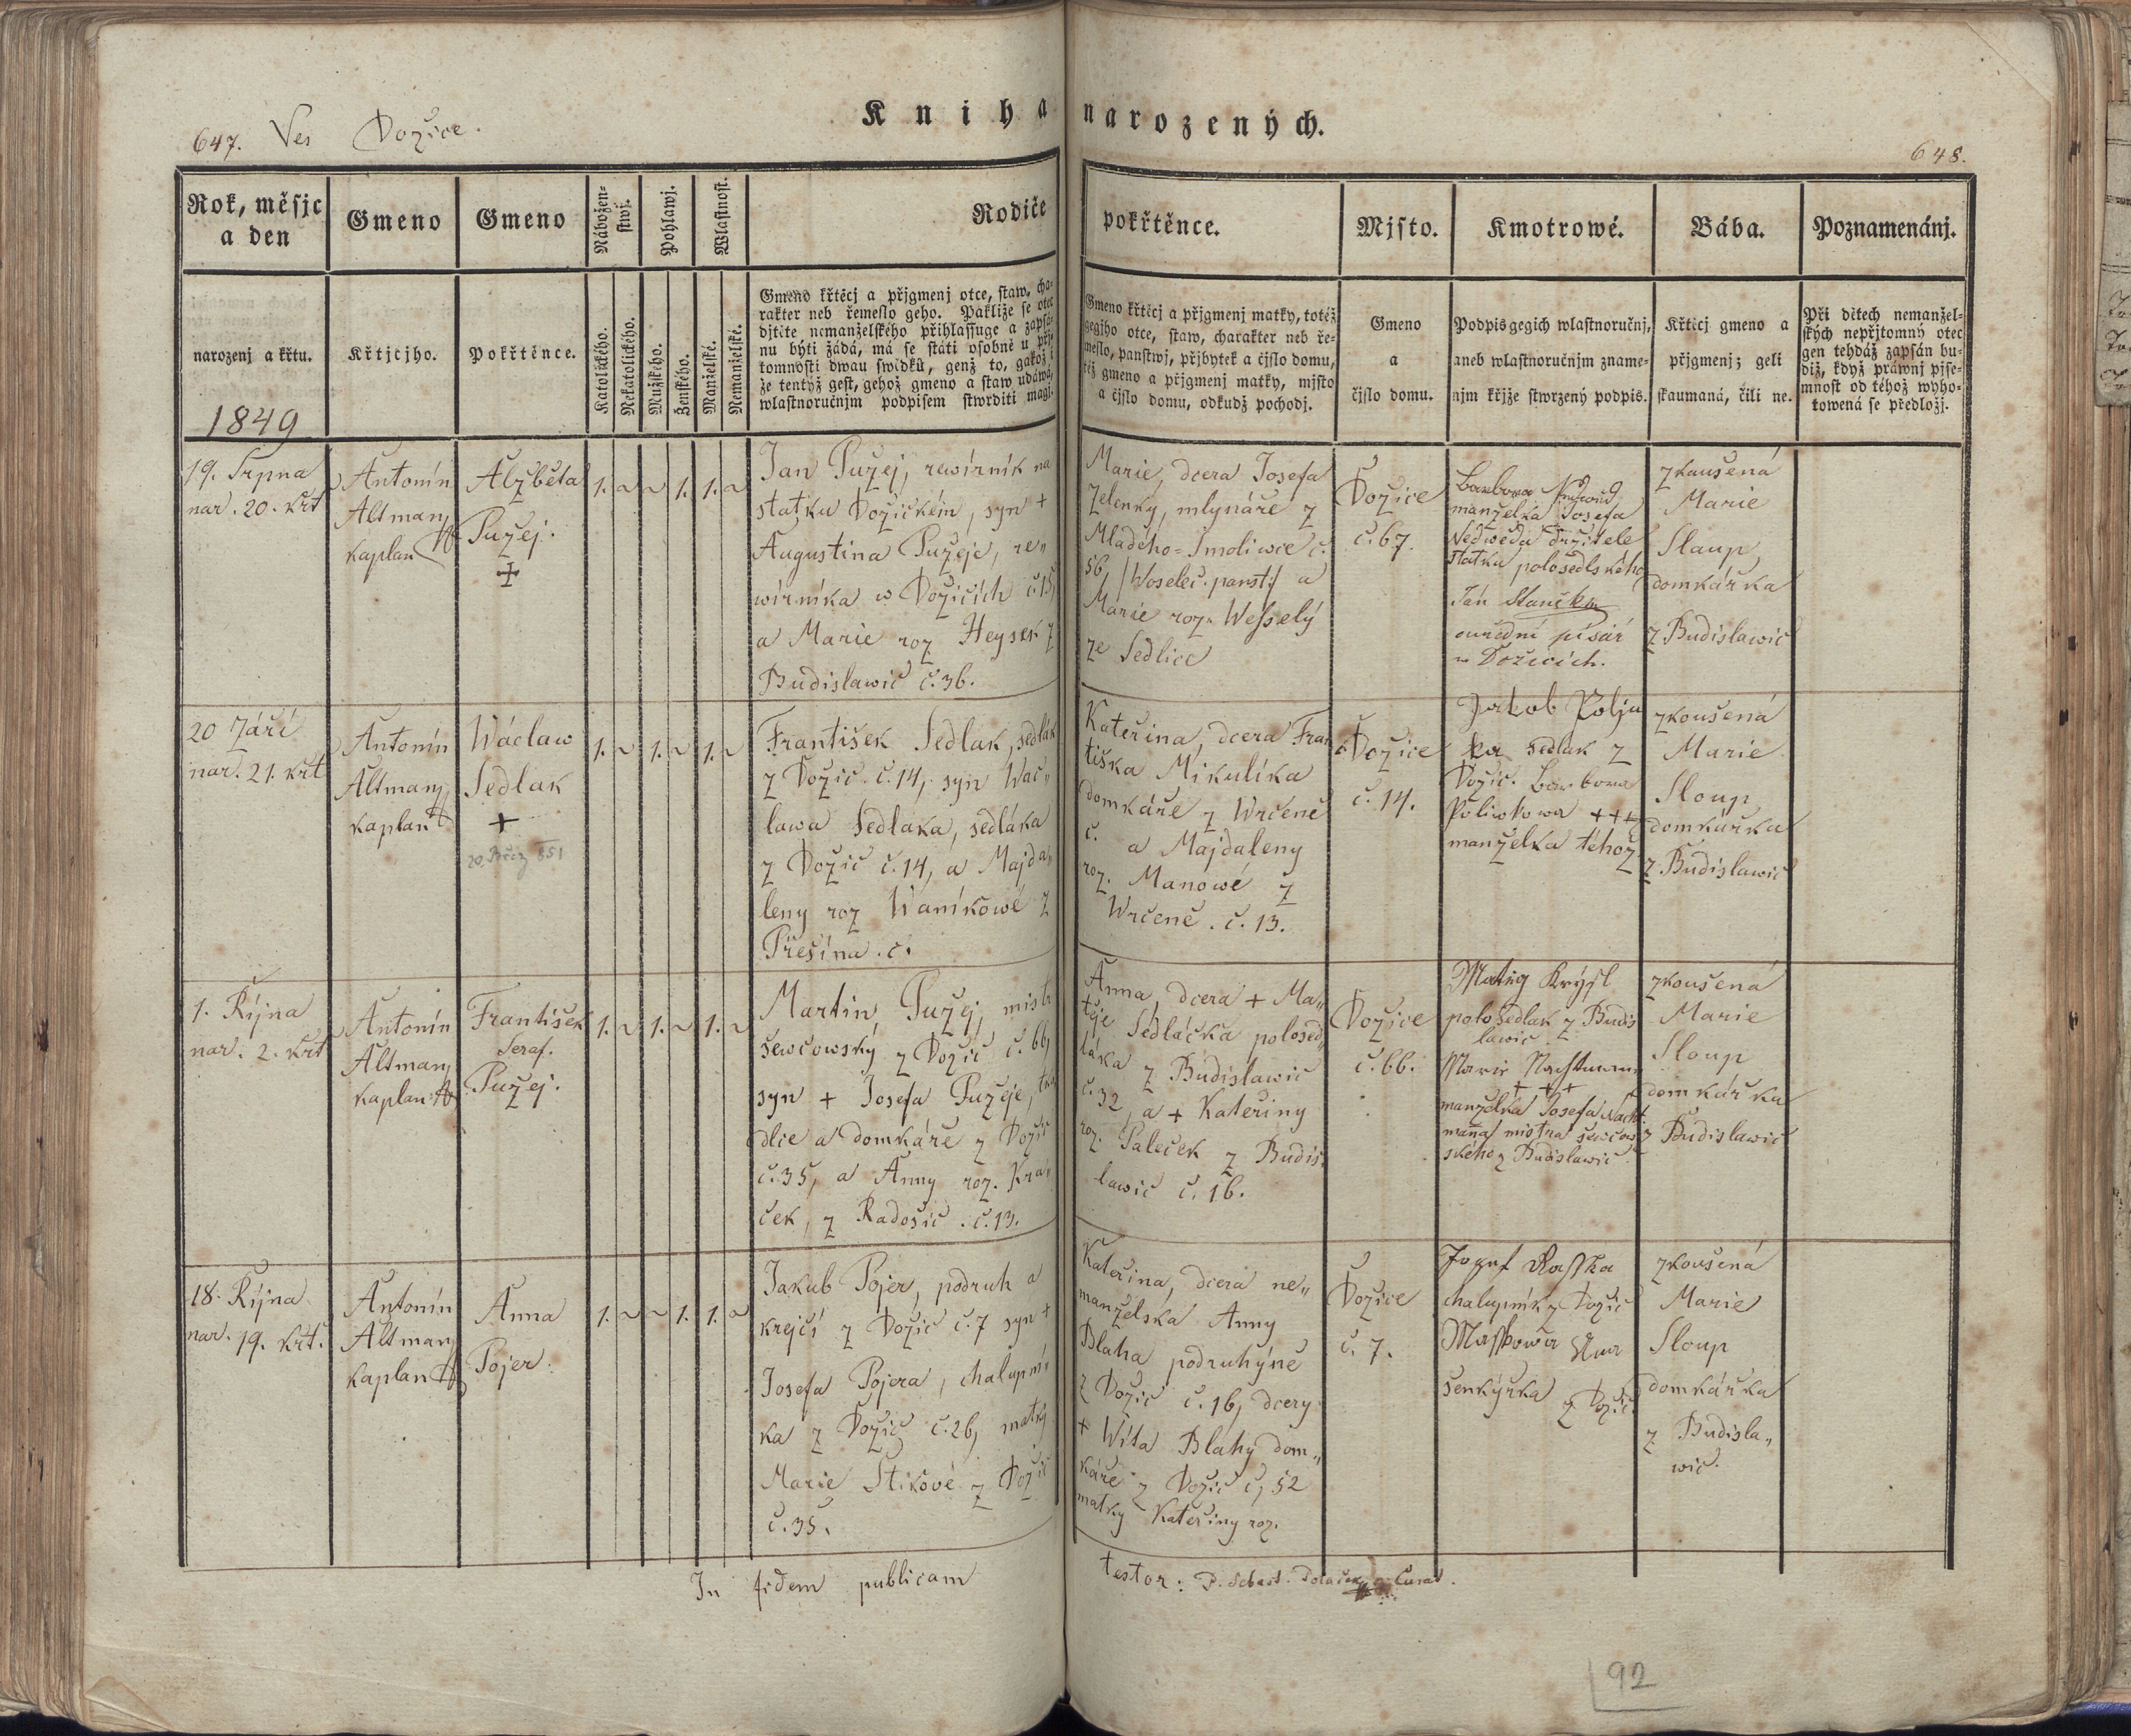 Kniha narozených.
647. Ves Dožice.
648.
Rok, měsjc
a den
Gmeno
Gmeno
Nábožen-
stwj.
Pohlawj.
Wlastnost.
Rodiče
pokřtěnce.
Mjsto.
Kmotrowé.
Bába.
Poznamenánj.
narozenj a křtu.
Křtjcjho.
Pokřtěnce.
Katolického.
Nekatolického.
Mužského.
Ženského.
Manželské.
Nemanželské.
Gmeno křtěcj a přjgmenj otce, staw, cha-
rakter neb řemeslo geho. Pakliže se otec
djtěte nemanželského přihlassuge a zapsá-
nu býti žádá, má se státi osobně u přj-
tomnosti dwau swědků, genž to, gakož i
že tentýž gest, gehož gmeno a staw udáwá,
wlastnoručnjm podpisem stwrditi magj.
Gmeno křtěcj a přjgmenj matky, totéž
gegjho otce, staw, charakter neb ře-
meslo, panstwj, přjbytek a čjslo domu,
též gmeno a přjgmenj matky, mjsto
a čjslo domu, odkudž pocházj.
Gmeno
a
čjslo domu.
Podpis gegich wlastnoručnj,
aneb wlastnoručnjm zname-
njm křjže stwrzený podpis.
Křtěcj gmeno a
přjgmenj; geli
zkaumaná, čili ne.
Při dětech nemanžel-
ských nepřjtomný otec
gen tehdáž zapsán bu-
diž, když práwnj pjse-
mnost od téhož wyho-
towená se předložj.
1849
19. Srpna
nar. 20. křt
Antonín
Altman
kaplan
Alžběta
Pužej.
1. ~ ~ 1. 1. ~
Jan Pužej, rewírník na
statku Dožickém, syn +
Augustina Pužeje, re„
wírníka w Dožicích č. 15,
a Marie roz Heysek z
Budislawic č. 36.
Marie, dcera Josefa
Zelenky, mlynáře z
Mladého=Smoliwce č.
56, /Woseleč. panst:/ a
Marie roz. Wesselý
ze Sedlice
Dožice
č. 67.
Barbora
manželka Josefa
Nedwěda držitele
statku polosedlského
Ján Stančk
ouřední písář
w Dožicích.
zkaušená
Marie
Slaup,
domkářka
z Budislawic
20 Září
nar. 21. křt
Antonín
Altman
kaplan
Wáclaw
Sedlak
+
20. Břez 851
1. ~ 1. ~ 1. ~
František Sedlak, sedlák
z Dožic č. 14, syn Wác„
lawa Sedlaka, sedláka
z Dožic č. 14, a Majda„
leny roz Waníkowé z
Přešína. č.
Kateřina, dcera Fran
tiška Mikulíka
domkáře z Wrčeně
č. a Majdaleny
roz. Manowé z
Wrčeně. č. 13.
Dožice
č. 14.
Jakob Polju
ka sedlak z
Dožic. Barbora
Poliwkowa +++
manželka téhož
zkoušená
Marie
Sloup,
domkářka
z Budislawic
1. Října
nar. 2. křt
Antonín
Altman
kaplan
František
Seraf.
Pužej.
1. ~ 1. ~ 1. ~
Martin Pužej, mistr
šewcowský z Dožic č. 66,
syn + Josefa Pužeje, tka
dlce a domkáře z Dožic
č. 35, a Anny roz. Kra„
ček, z Radošic. č. 13.
Anna, dcera + Ma„
těje Sedláčka polosed„
láka z Budislawic
č. 32, a + Kateřiny
roz. Paleček z Budis„
lawic č. 16.
Dožice
č. 66.
Matěg Krýsl
polosedlak z Budis
lawic
Marie Nachtman
+ + +
manželka Josefa Nacht
mana mistra šewcow
ského z Budislawic
zkoušená
Marie
Sloup
domkářka
z Budislawic
18. Října
nar. 19. křt.
Antonín
Altman
kaplan
Anna
Pojer.
1. ~ ~ 1. 1. ~
Jakub Pojer, podruh a
krejčí z Dožic č. 7 syn +
Josefa Pojera, chalupní„
ka z Dožic č. 26, matky
Marie Stikowé z Dožic
č. 35.
Kateřina, dcera ne„
manželska Anny
Blaha podruhýně
z Dožic č. 16, dcery
+ Wíta Blahy dom„
káře z Dožic č, 52
matky Kateřiny roz.
Dožice
č. 7.
Jozef Rasska
chalupník z Dožic
Masskowa
šenkýřka z Dožic
zkoušená
Marie
Sloup
domkářka
z Budisla„
wic.
In fidem publicam
testor: P. Sebast.
92